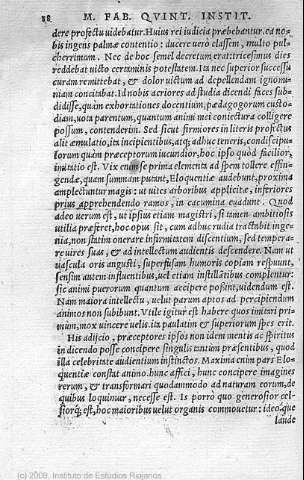 88 M. FAB. QVINT. INSTIT.
dere profectu videbatur. Huius rei iudicia præbebantur. ea no-
bis ingens palmæ contentio: ducere uerò classem, multo pul-
cherrimum. Nec de hoc semel decretum erat: tricesimus dies
reddebat victo certaminis potestatem. Ita nec superior successu
curam remittebat, & dolor victum ad depellendam ignomi-
niam concitabat. Id nobis acriores ad studia dicendi faces sub-
didisse, quàm exhortationes docentium, pædagogorum custo-
diam, uota parentum, quantum animi mei coniectura colligere
possum, contenderim. Sed sicut firmiores in literis profectus
alit æmulatio, ita incipientibus, atq; adhuc teneris, condiscipu-
lorum quàm præceptorum iucundior, hoc ipso quòd facilior,
imitatio est. Vix enim se prima elementa ad spem tollere effin-
gendæ, quam summam putant, Eloquentiæ audebunt: proxima
amplectuntur magis: ut uites arboribus applicitæ, inferiores
prius apprehendendo ramos, in cacumina euadunt. Quod
adeo uerum est, ut ipsius etiam magistri, si tamen ambitiosis
utilia præferet, hoc opus sit, cum adhuc rudia tractabit inge-
nia, non statim onerare infirmitatem discentium, sed tempera-
re uires suas, & ad intellectum audientis descendere. Nam ut
uascula oris angusti, superfusam humoris copiam respuunt,
sensim autem influentibus, uel etiam instillatis complentur:
sic animi puerorum quantum accipere possint, uidendum est.
Nam maiora intellectu, uelut parum aptos ad percipiendum
animos non subibunt. Vtile igitur est habere quos imitari pri-
mùm, mox uincere uelis. ita paulatim & superiorum spes erit.
His adijcio, præceptores ipsos non idem mentis ac spiritus
in dicendo posse concipere singulis tantùm præsentibus, quod
illa celebritate audientium instinctos. Maxima enim pars Elo-
quentiæ constat animo. hunc affici, hunc concipere imagines
rerum, & transformari quodammodo ad naturam eorum, de
quibus loquimur, necesse est. Is porro quo generosior cel-
siorq́; est, hoc maioribus uelut organis commouetur: ideoq́ue
laude
(c) 2009, Instituto de Estudios Riojanos